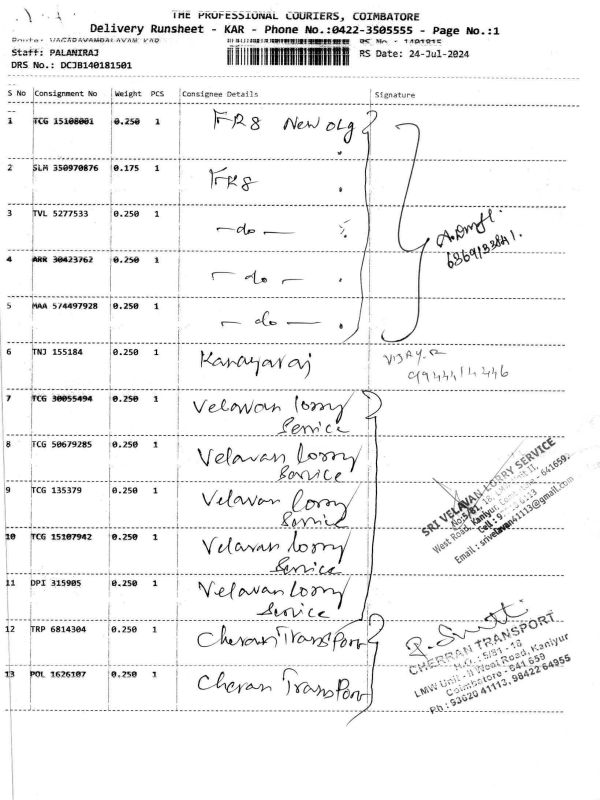 THE PROFESSIONAL COURIERS, COIMBATORE
Delivery Runsheet - KAR - Phone No.:0422-3505555 - Page No.:1
RS No.: 1401815
Staff: PALANIRAJ
RS Date: 24-Jul-2024
DRS No.: DCJB140181501
S No Consignment No Weight PCS Consignee Details Signature
1 TCG 15108001 0.250 1 New
2 SLM 350970876 0.175 1
3 TVL 5277533 0.250 1 -do-
4 ARR 30423762 0.250 1 -do-
5 MAA 574497928 0.250 1 -do-
6 TNJ 155184 0.250 1 Kanayaraj
7 TCG 30055494 0.250 1 Velavan lorry
Service
8 TCG 50679285 0.250 1 Velavan lorry
Service
9 TCG 135379 0.250 1 Velavan lorry
Service
10 TCG 15107942 0.250 1 Velavan lorry
Service
11 DPI 315905 0.250 1 Velavan lorry
Service
SRI VELAVAN LORRY SERVICE
West Road, Kaniyur,
Email : srivelavan41113@gmail.com
12 TRP 6814304 0.250 1 Cheran Transport
13 POL 1626107 0.250 1 Cheran Transport
CHERRAN TRANSPORT
H.O. : 5/81 - 18
LMW Unit - II West Road, Kaniyur
Coimbatore - 641 659
Ph : 93620 41113, 98422 64955